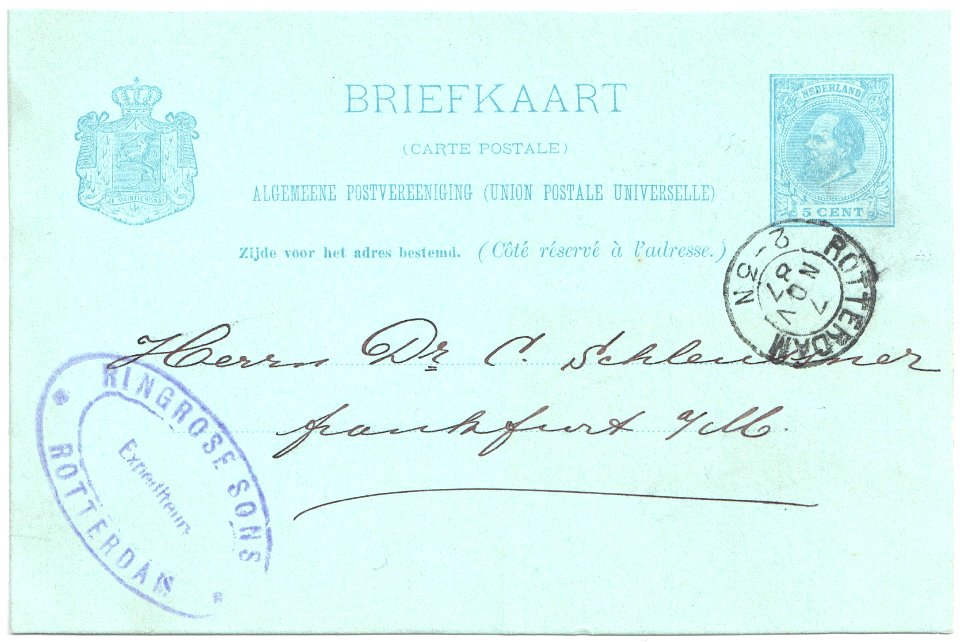 BRIEFKAART
(CARTE POSTALE)
ALGEMEENE POSTVEREENIGING (UNION POSTALE UNIVERSELLE)
Zijde voor het adres bestemd. (Côté réservé à l'adresse.)
NEDERLAND
5 CENT
ROTTERDAM
2-3N
7
NOV
87
Herrn Dr C. Schleussner
Frankfurt a/M.
RINGROSE SONS
Expediteurs
ROTTERDAM